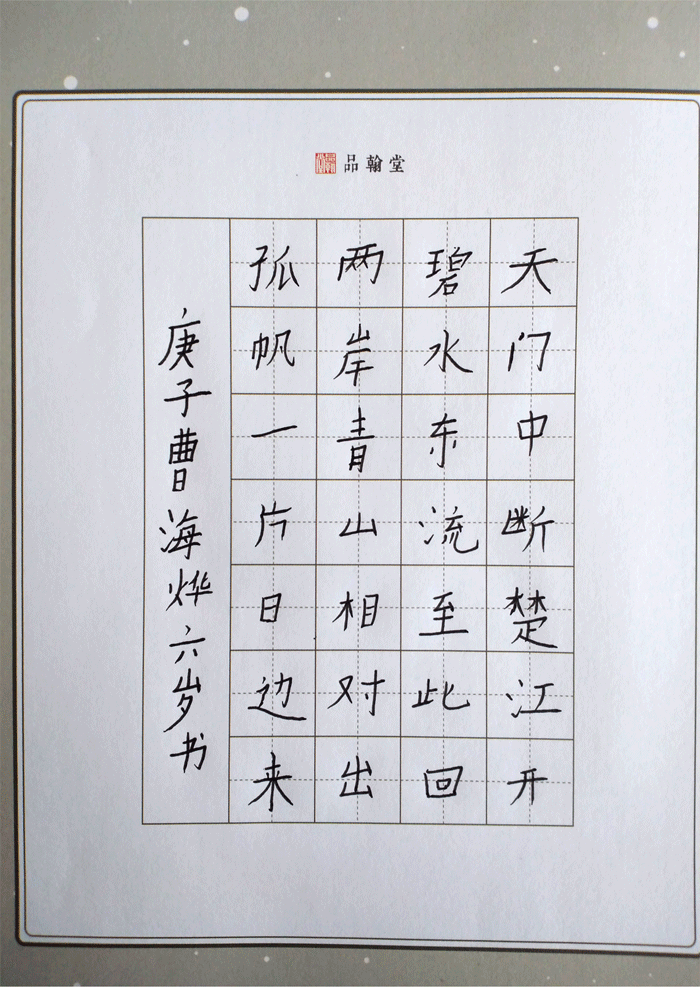 品翰堂
天门中断楚江开
碧水东流至此回
两岸青山相对出
孤帆一片日边来
庚子曹海烨六岁书